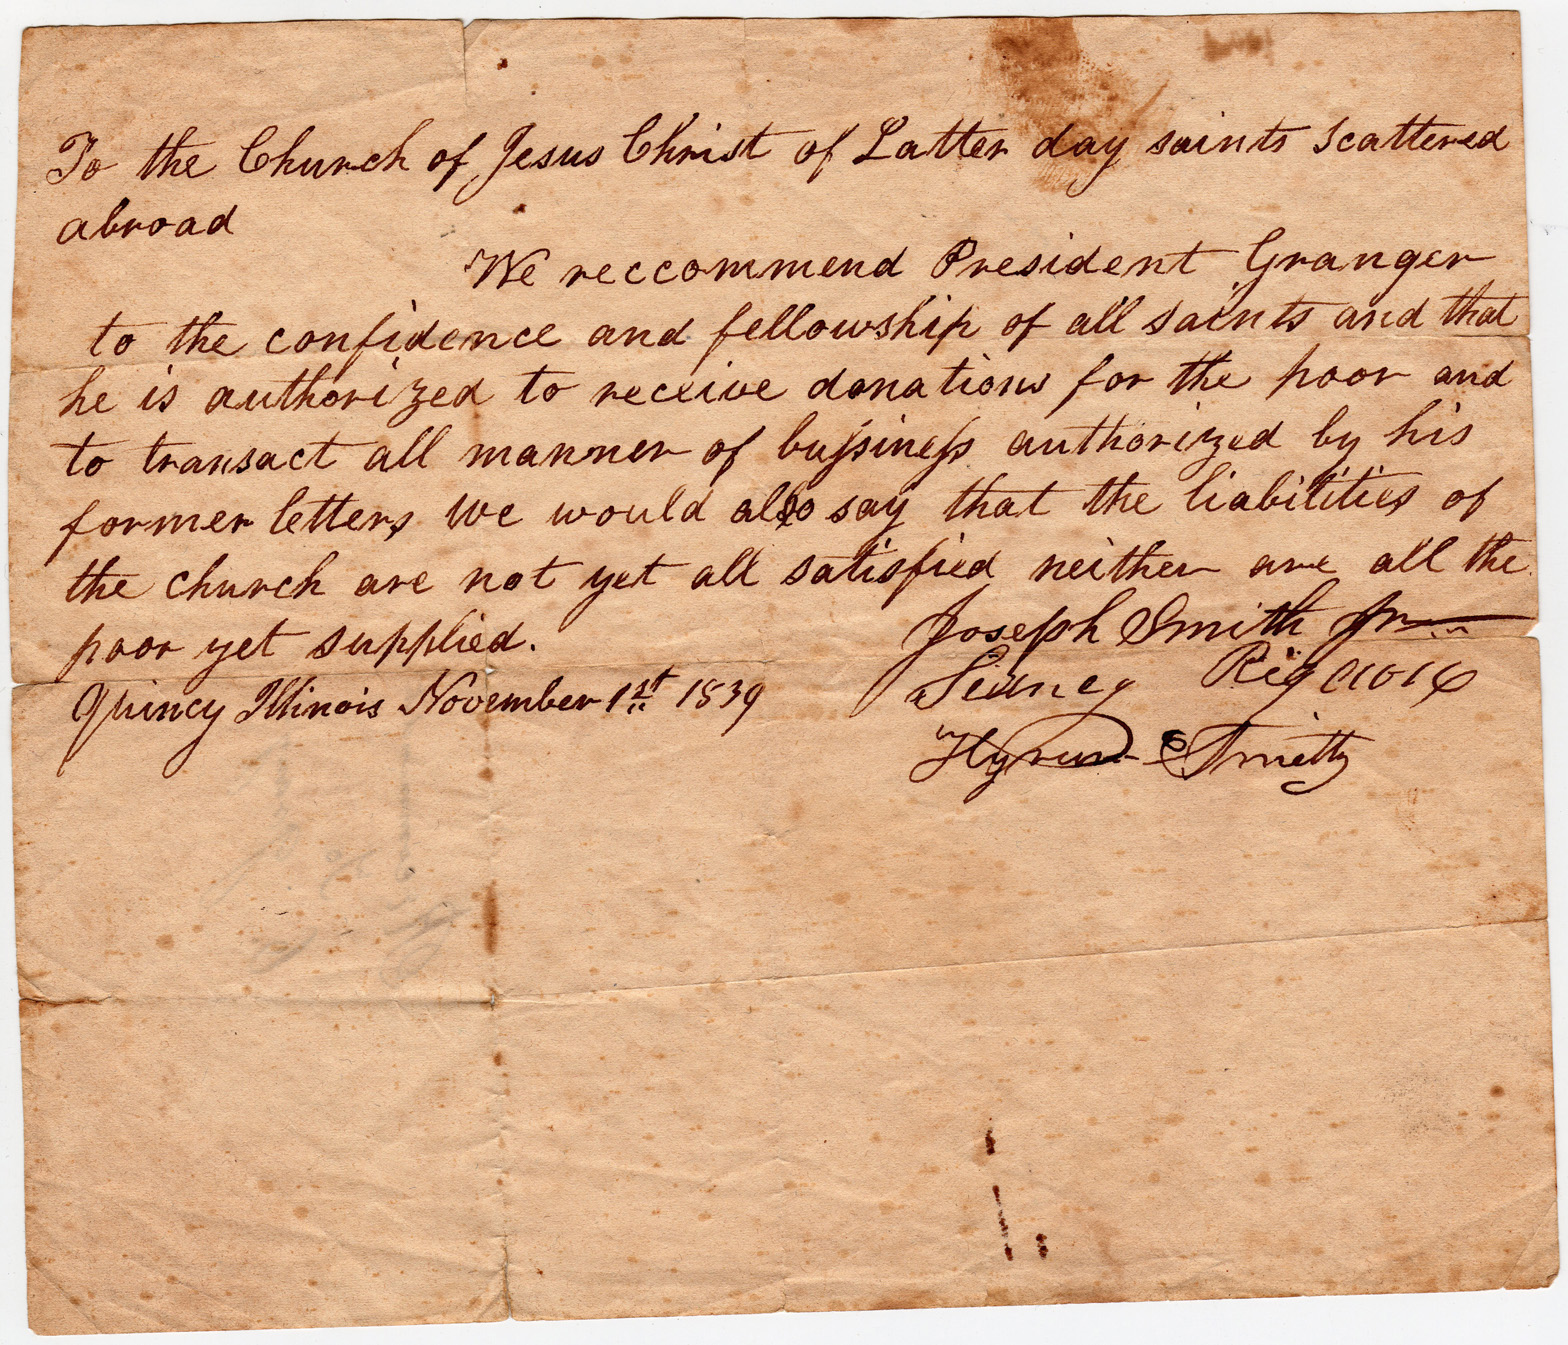 To the Church of Jesus Christ of Latter day saints scattered
abroad
We reccommend President Granger
to the confidence and fellowship of all saints and that
he is authorized to receive donations for the poor and
to transact all manner of bussiness authorized by his
former letters we would also say that the liabilities of
the church are not yet all satisfied neither are all the
poor yet supplied.
Joseph Smith Jr
Quincy Illinois November 1st 1839
Sidney Rigdon
Hyrum Smith